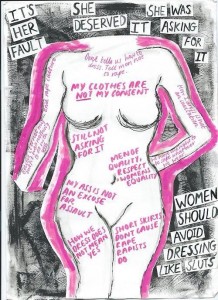 IT'S
HER
FAULT
SHE
DESERVED
IT
SHE WAS
ASKING
FOR
IT
MY CLOTHES ARE
NOT MY CONSENT
STILL NOT
ASKING
FOR IT
MEN OF
QUALITY
RESPECT
WOMENS
EQUALITY
MY ASS IS NOT
AN EXCUSE
FOR
ASSAULT
HOW WE
DRESS DOES
NOT MEAN
YES
SHORT SKIRTS
DON'T CAUSE
RAPE
RAPISTS
DO
WOMEN
SHOULD
AVOID
DRESSING
LIKE SLUTS